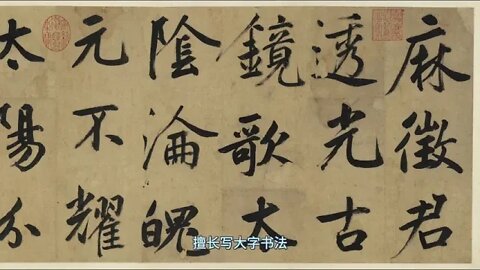 麻徵君
透光古
鏡歌大
陰淪魄
元不耀
太陽分
擅长写大字书法